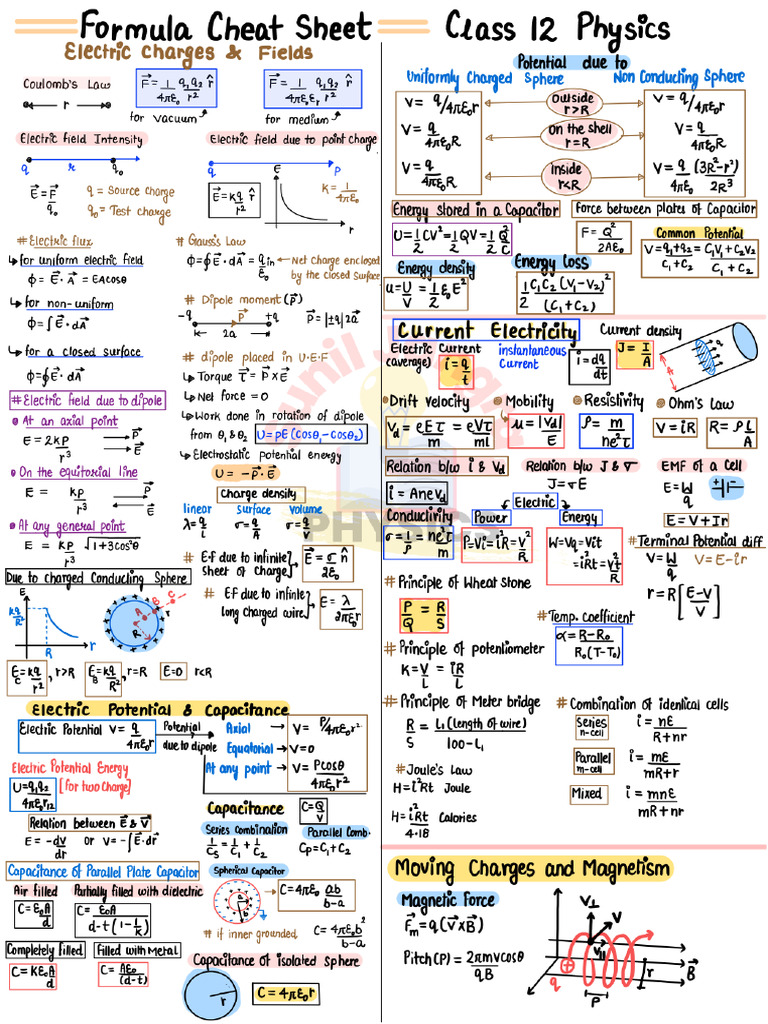 Formula Cheat Sheet
Class 12 Physics
Electric Charges & Fields
Coulomb's Law
r
F⃗ = 1/4πε₀ q₁q₂/r² r̂
for vacuum
F⃗ = 1/4πε₀εᵣ q₁q₂/r² r̂
for medium
Electric field Intensity
q r q₀
E⃗ = F⃗/q₀
q = Source charge
q₀ = Test charge
Electric field due to point charge
q P
E⃗ = kq/r² r̂
E
r
K = 1/4πε₀
# Electric flux
↳ for uniform electric field
ϕ = E⃗ · A⃗ = EA cosθ
↳ for non-uniform
ϕ = ∫E⃗ · dA⃗
↳ for a closed surface
ϕ = ∮E⃗ · dA⃗
# Gauss's Law
ϕ = ∮E⃗ · dA⃗ = qin/ε₀ ← Net charge enclosed
by the closed Surface
# Dipole moment (P⃗)
-q P⃗ +q
2a
P⃗ = |±q| 2a⃗
# dipole placed in U.E.F
↳ Torque τ⃗ = P⃗ × E⃗
↳ Net force = 0
↳ Work done in rotation of dipole
from θ₁ & θ₂ U = pE (cosθ₁ - cosθ₂)
↳ Electrostatic potential energy
U = -P⃗ · E⃗
# Electric field due to dipole
At an axial point
E = 2kp/r³
P⃗
E⃗
On the equitorial line
E = kp/r³
P⃗
E⃗
At any general point
E = kp/r³ √1+3cos²θ
Charge density
linear surface volume
λ = q/L σ = q/A σ = q/V
# Ef due to infinite
sheet of Charge
E⃗ = σ/2ε₀ n̂
# Ef due to infinite
long charged wire
E = λ/2πε₀r
Due to charged Conducting Sphere
E
kq/R²
R
r
A B C
R
E_C = kq/r², r>R
E_B = kq/R², r=R
E=0 r<R
Electric Potential & Capacitance
Electric Potential V = q/4πε₀r
Potential
due to dipole
Axial → V = P/4πε₀r²
Equatorial → V=0
At any point → V = Pcosθ/4πε₀r²
Electric Potential Energy
U = q₁q₂/4πε₀r₁₂
[for two Charge]
Relation between E⃗ & V⃗
E = -dV/dr or V = -∫E⃗·dr⃗
Capacitance
C = Q/V
Series combination
1/Cs = 1/C₁ + 1/C₂
Parallel Comb.
Cp = C₁ + C₂
Capacitance of Parallel Plate Capacitor
Air filled
C = ε₀A/d
Partially filled with dielectric
C = ε₀A/d-t(1-1/K)
Completely filled
C = Kε₀A/d
Filled with Metal
C = Aε₀/(d-t)
Spherical Capacitor
a
b
C = 4πε₀ ab/b-a
# if inner grounded
C = 4πε₀b²/b-a
Capacitance of isolated sphere
r
C = 4πε₀r
Potential due to
Uniformly Charged Sphere
Non Conducting Sphere
V = q/4πε₀r
Outside
r>R
V = q/4πε₀r
V = q/4πε₀R
On the shell
r=R
V = q/4πε₀R
V = q/4πε₀R
Inside
r<R
V = q/4πε₀ (3R²-r²)/2R³
Energy stored in a Capacitor
U = 1/2 CV² = 1/2 QV = 1/2 Q²/C
Force between plates of Capacitor
F = Q²/2Aε₀
Common Potential
V = q₁+q₂/C₁+C₂ = C₁V₁+C₂V₂/C₁+C₂
Energy density
u = U/V = 1/2 ε₀E²
Energy loss
1/2 C₁C₂(V₁-V₂)²/(C₁+C₂)
Current Electricity
Electric Current
(average)
i = q/t
instantaneous
Current
i = dq/dt
Current density
J = I/A
A
Drift velocity
Vd = eEτ/m = eVτ/ml
Mobility
μ = |Vd|/E
Resistivity
ρ = m/ne²τ
Ohm's Law
V = iR
R = ρL/A
Relation b/w i & Vd
i = AneVd
Relation b/w J & σ
J = σE
EMF of a Cell
E = W/q
+ -
E = V + Ir
Conductivity
σ = 1/ρ = ne²τ/m
Electric
Power
P = Vi = i²R = V²/R
Energy
W = Vq = Vit
= i²Rt = V²t/R
# Terminal Potential diff
V = W/q
V = E-ir
r = R [E-V/V]
# Principle of Wheat stone
P/Q = R/S
# Temp. coefficient
α = R-R₀/R₀(T-T₀)
# Principle of potentiometer
K = V/L = iR/L
# Principle of Meter bridge
R/S = L₁(length of wire)/100-L₁
# Combination of identical cells
Series
n-cell
i = nE/R+nr
Parallel
m-cell
i = mE/mR+r
Mixed
i = mnE/mR+nr
# Joule's Law
H = i²Rt Joule
H = i²Rt/4.18 Calories
Moving Charges and Magnetism
Magnetic Force
F⃗m = q(V⃗×B⃗)
Pitch(P) = 2πmvcosθ/qB
V⊥
V
V∥
q
P
r
B⃗
PHYSICS